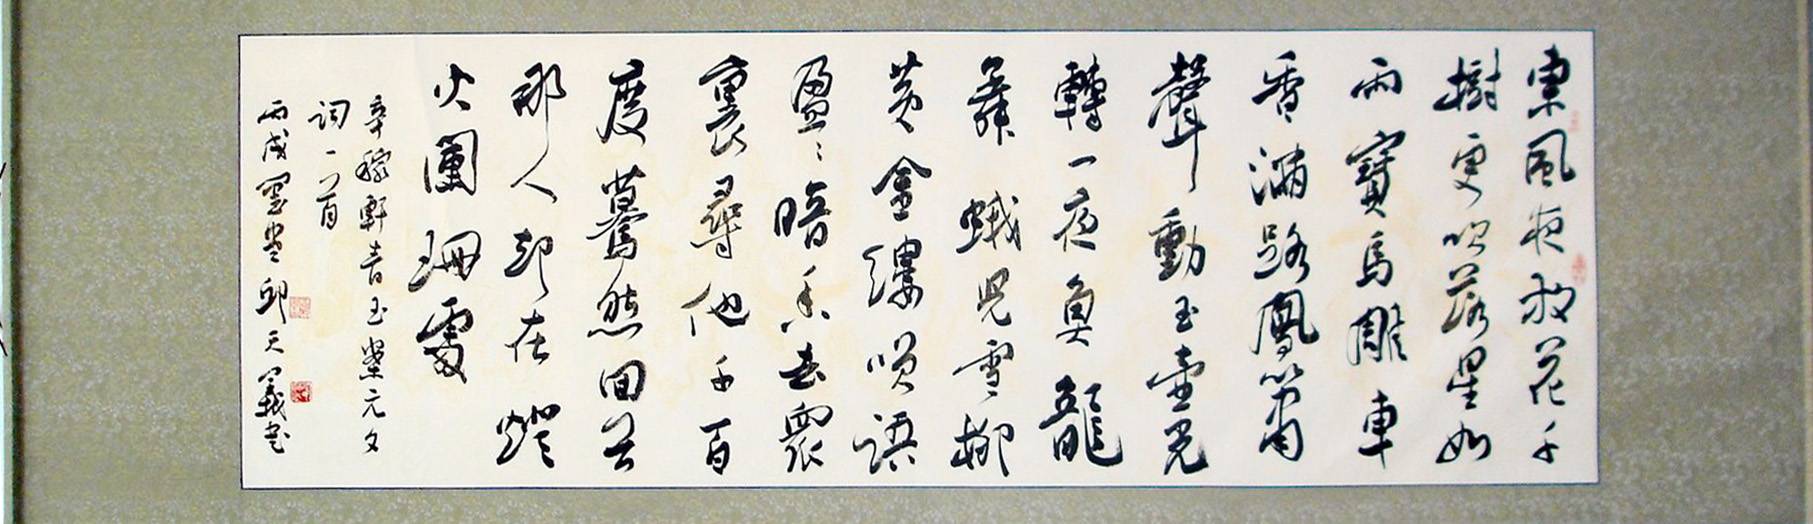 東風夜放花千
樹更吹落星如
雨寶馬雕車
香滿路鳳簫
聲動玉壺光
轉一夜魚龍
舞蛾兒雪柳
黃金縷笑語
盈〻暗香去眾
裏尋他千百
度驀然回首
那人卻在燈
火闌珊處
辛稼軒青玉案元夕
詞一首
丙戌墨堂邱天義書